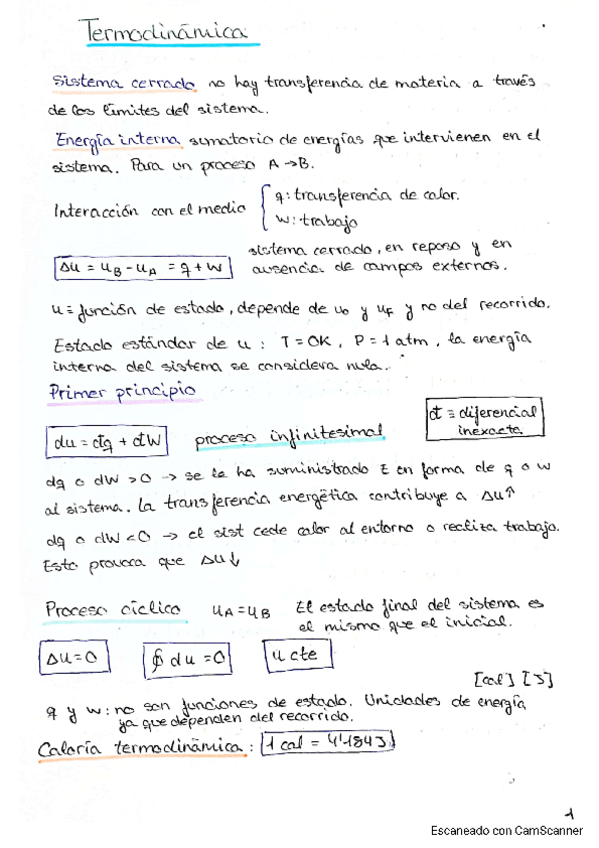 Termodinámica
Sistema cerrado no hay transferencia de materia a través
de los límites del sistema.
Energía interna sumatorio de energías que intervienen en el
sistema. Para un proceso A → B.
Interacción con el medio { q: transferencia de calor.
w: trabajo
Δu = u_B - u_A = q + w sistema cerrado, en reposo y en
ausencia de campos externos.
u ≡ función de estado, depende de u₀ y u_F y no del recorrido.
Estado estándar de u : T = 0K , P = 1 atm , la energía
interna del sistema se considera nula.
Primer principio
đ ≡ diferencial
inexacta
du = đq + đW proceso infinitesimal
dq o dW > 0 → se le ha suministrado E en forma de q o w
al sistema. La transferencia energética contribuye a Δu↑
dq o dW < 0 → el sist cede calor al entorno o realiza trabajo.
Esto provoca que Δu↓
Proceso cíclico u_A = u_B El estado final del sistema es
el mismo que el inicial.
Δu = 0 ∮ du = 0 u cte
[cal] [J]
q y w: no son funciones de estado. Unidades de energía
ya que dependen del recorrido.
Caloría termodinámica : 1 cal = 4'184J
1
Escaneado con CamScanner